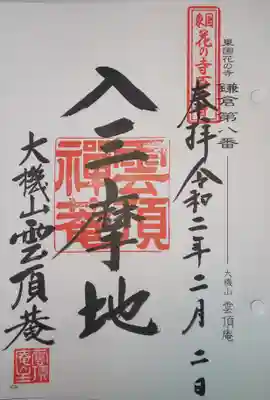 東国花の寺 鎌倉第八番
大機山 雲頂庵
奉拝 令和二年二月二日
入三摩地
雲頂禅菴
大機山雲頂菴